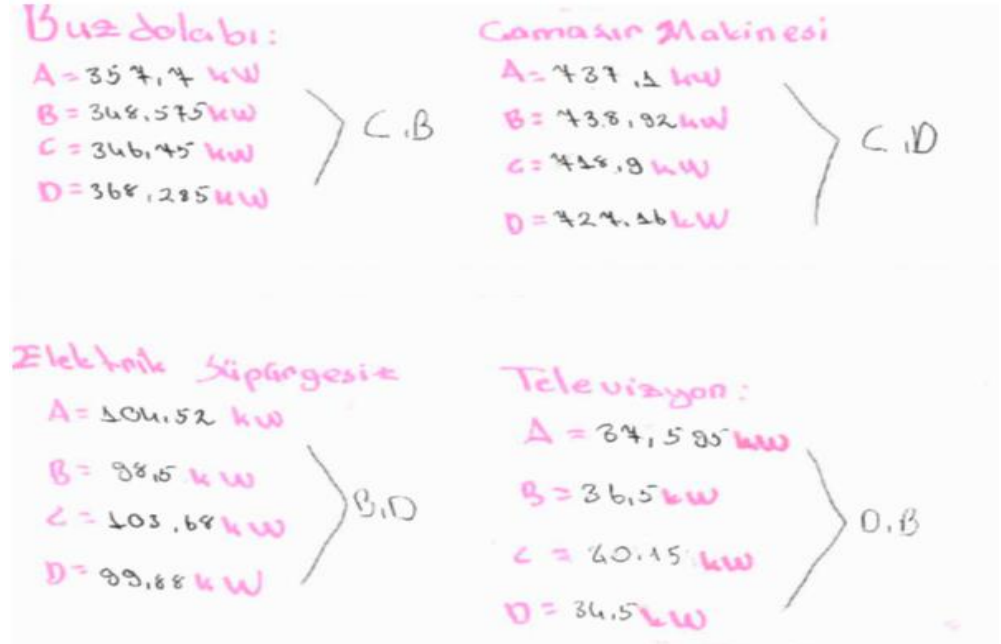 Buzdolabı:
A = 357,7 kW
B = 348,575 kW
C = 346,75 kW
D = 368,285 kW
C,B
Camaşır Makinesi
A = 737,1 kW
B = 738,92 kW
C = 718,9 kW
D = 727,16 kW
C,D
Elektrik Süpürgesi:
A = 104,52 kW
B = 98,5 kW
C = 103,68 kW
D = 99,88 kW
B,D
Televizyon:
A = 37,595 kW
B = 36,5 kW
C = 40,15 kW
D = 34,5 kW
D,B